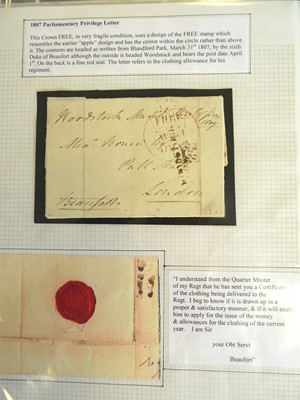 1807 Parliamentary Privilege Letter
This Crown FREE, in very fragile condition, uses a design of the FREE stamp which
resembles the earlier "apple" design and has the crown within the circle rather than above
it. The contents are headed as written from Blandford Park, March 31st 1807, by the sixth
Duke of Beaufort although the outside is headed Woodstock and bears the post date April
1st. On the back is a fine red seal. The letter refers to the clothing allowance for his
regiment.
Woodstock
1807
FREE
Pall Mall
London
Beaufort
"I understand from the Quarter Master
of my Regt that he has sent you a Certificate
of the clothing being delivered to the
Regt. I beg to know if it is drawn up in a
proper & satisfactory manner, & if it will
him to apply for the issue of the money
& allowances for the clothing of the current
year. I am Sir
your Obt Servt
Beaufort"